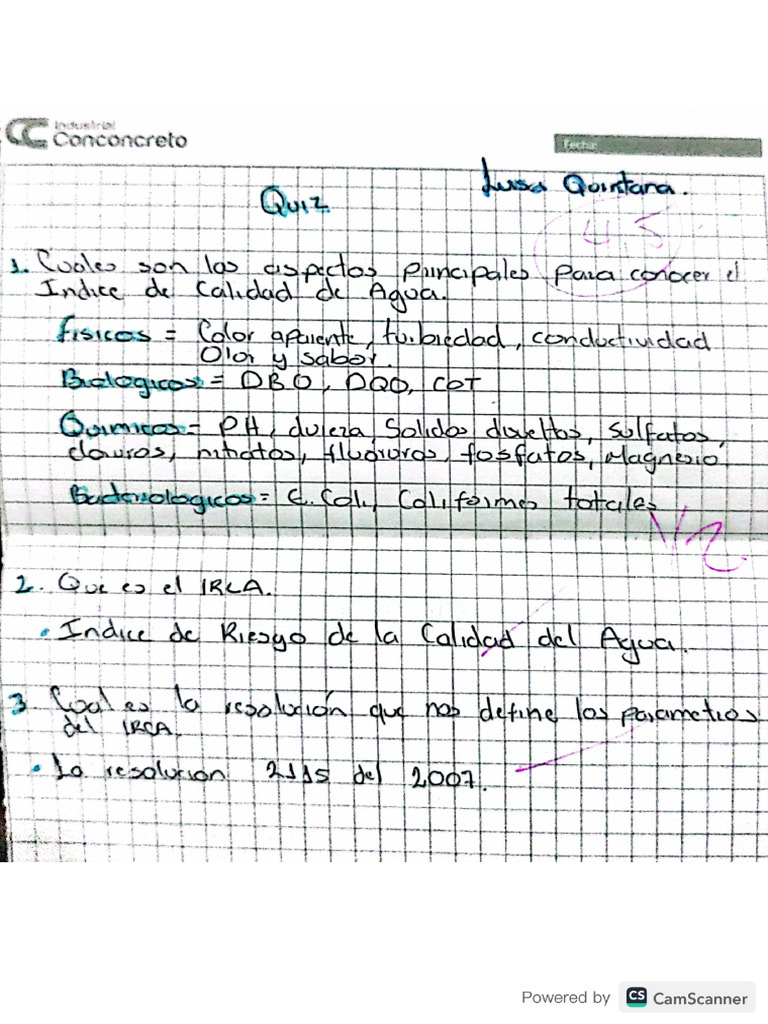 Industrial
Conconcreto
Fecha:
Luisa Quintana.
Quiz
4.5
1. Cuales son los aspectos principales para conocer el
Indice de Calidad de Agua.
fisicos = Color aparente, turbiedad, conductividad
Olor y sabor.
Biologicos = DBO, DQO, COT
Quimicos = PH, dureza, Solidos disueltos, sulfatos,
cloruros, nitratos, fluoruros, fosfatos, Magnesio
Bacteriologicos = E. Coli, Coliformes totales
1/2
2. Que es el IRCA.
• Indice de Riesgo de la Calidad del Agua.
3. Cual es la resolución que nos define los parametros
del IRCA.
• La resolucion 2115 del 2007.
Powered by CS CamScanner